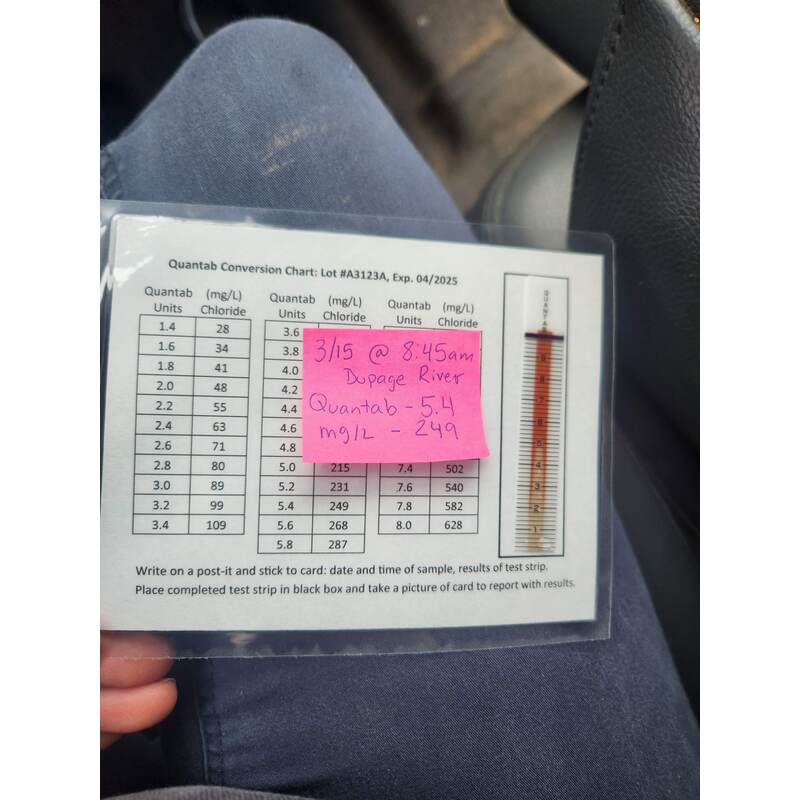 Quantab Conversion Chart: Lot #A3123A, Exp. 04/2025
Quantab (mg/L) Quantab (mg/L) Quantab (mg/L)
Units Chloride Units Chloride Units Chloride
1.4 28 3.6
1.6 34 3.8
1.8 41 4.0
2.0 48 4.2
2.2 55 4.4
2.4 63 4.6
2.6 71 4.8
2.8 80 5.0 215 7.4 502
3.0 89 5.2 231 7.6 540
3.2 99 5.4 249 7.8 582
3.4 109 5.6 268 8.0 628
5.8 287
3/15 @ 8:45am
Dupage River
Quantab - 5.4
mg/L - 249
QUANTAB
9
8
7
6
5
4
3
2
1
Write on a post-it and stick to card: date and time of sample, results of test strip.
Place completed test strip in black box and take a picture of card to report with results.